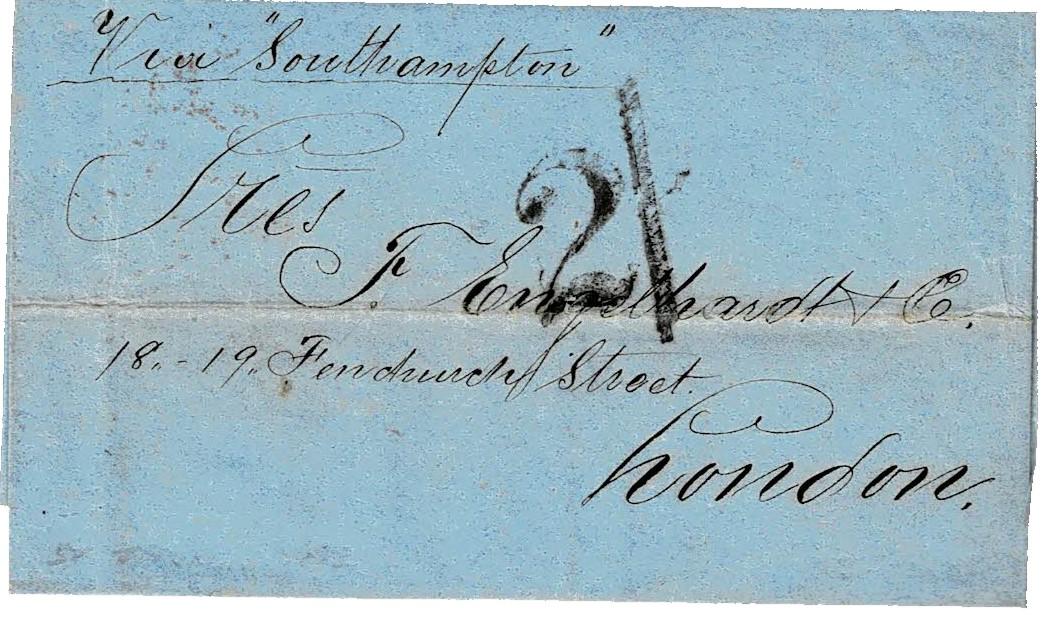 Via "Southampton"
2/
Sres
F. Engelhardt & C.
18.-19. Fenchurch Street.
London.